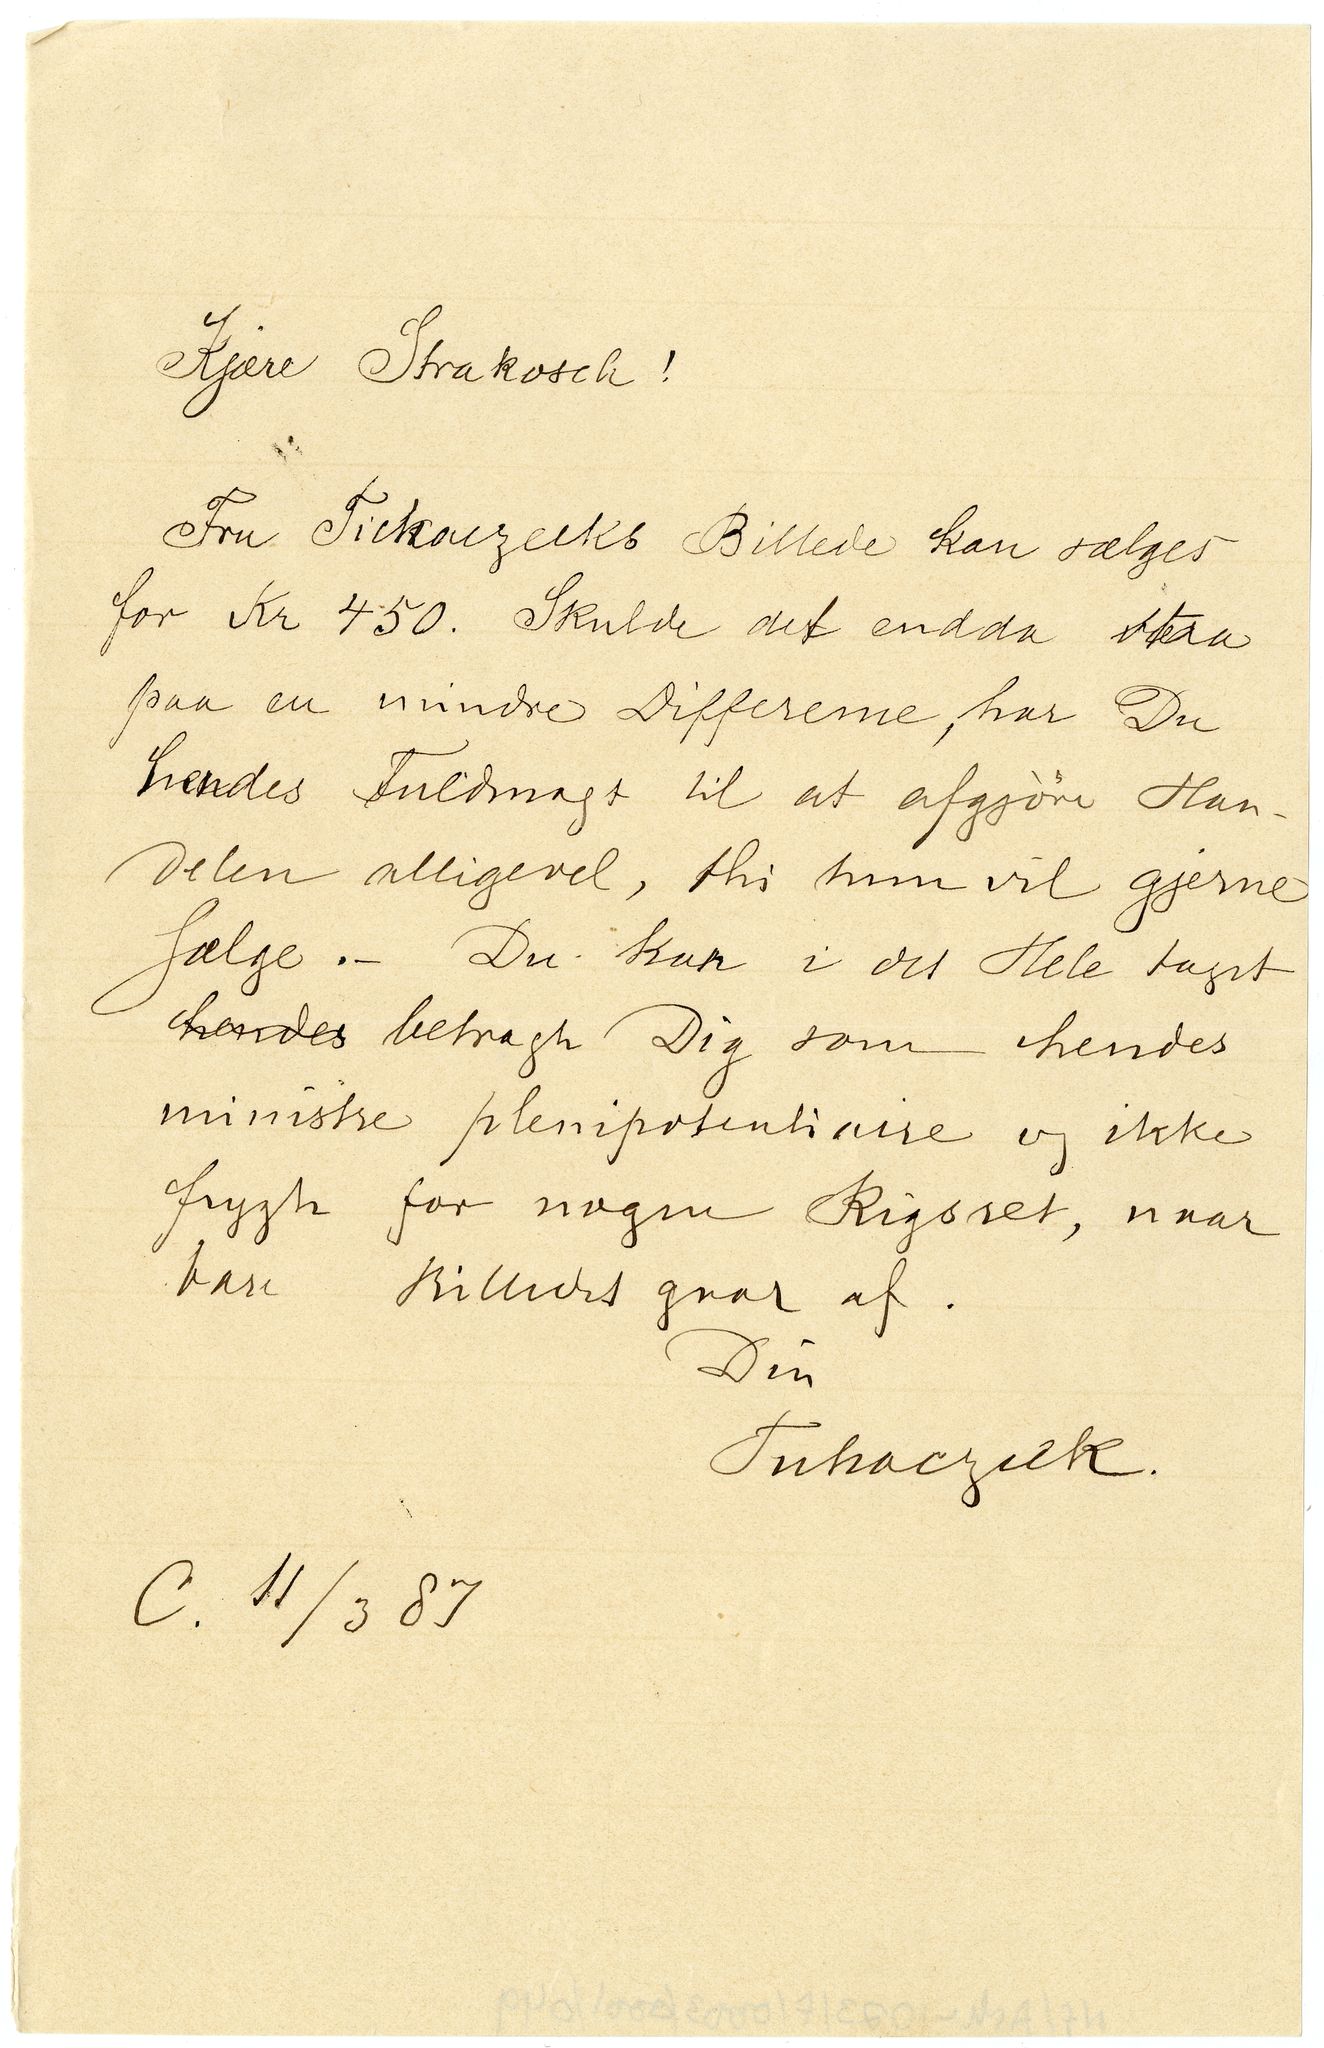 Kjære Strakosch!
Fru Tickaczecks Billede kan sælges
for Kr 450. Skulde det endda staa
paa en mindre Differense, har Du
hendes Fuldmagt til at afgjöre Han-
delen alligevel, thi hun vil gjerne
sælge. – Du kan i det Hele taget
hendes betragte Dig som hendes
ministre plenipotentiaire og ikke
frygte for nogen Rigsret, naar
bare Billedet gaar af.
Din
C. 11/3 87